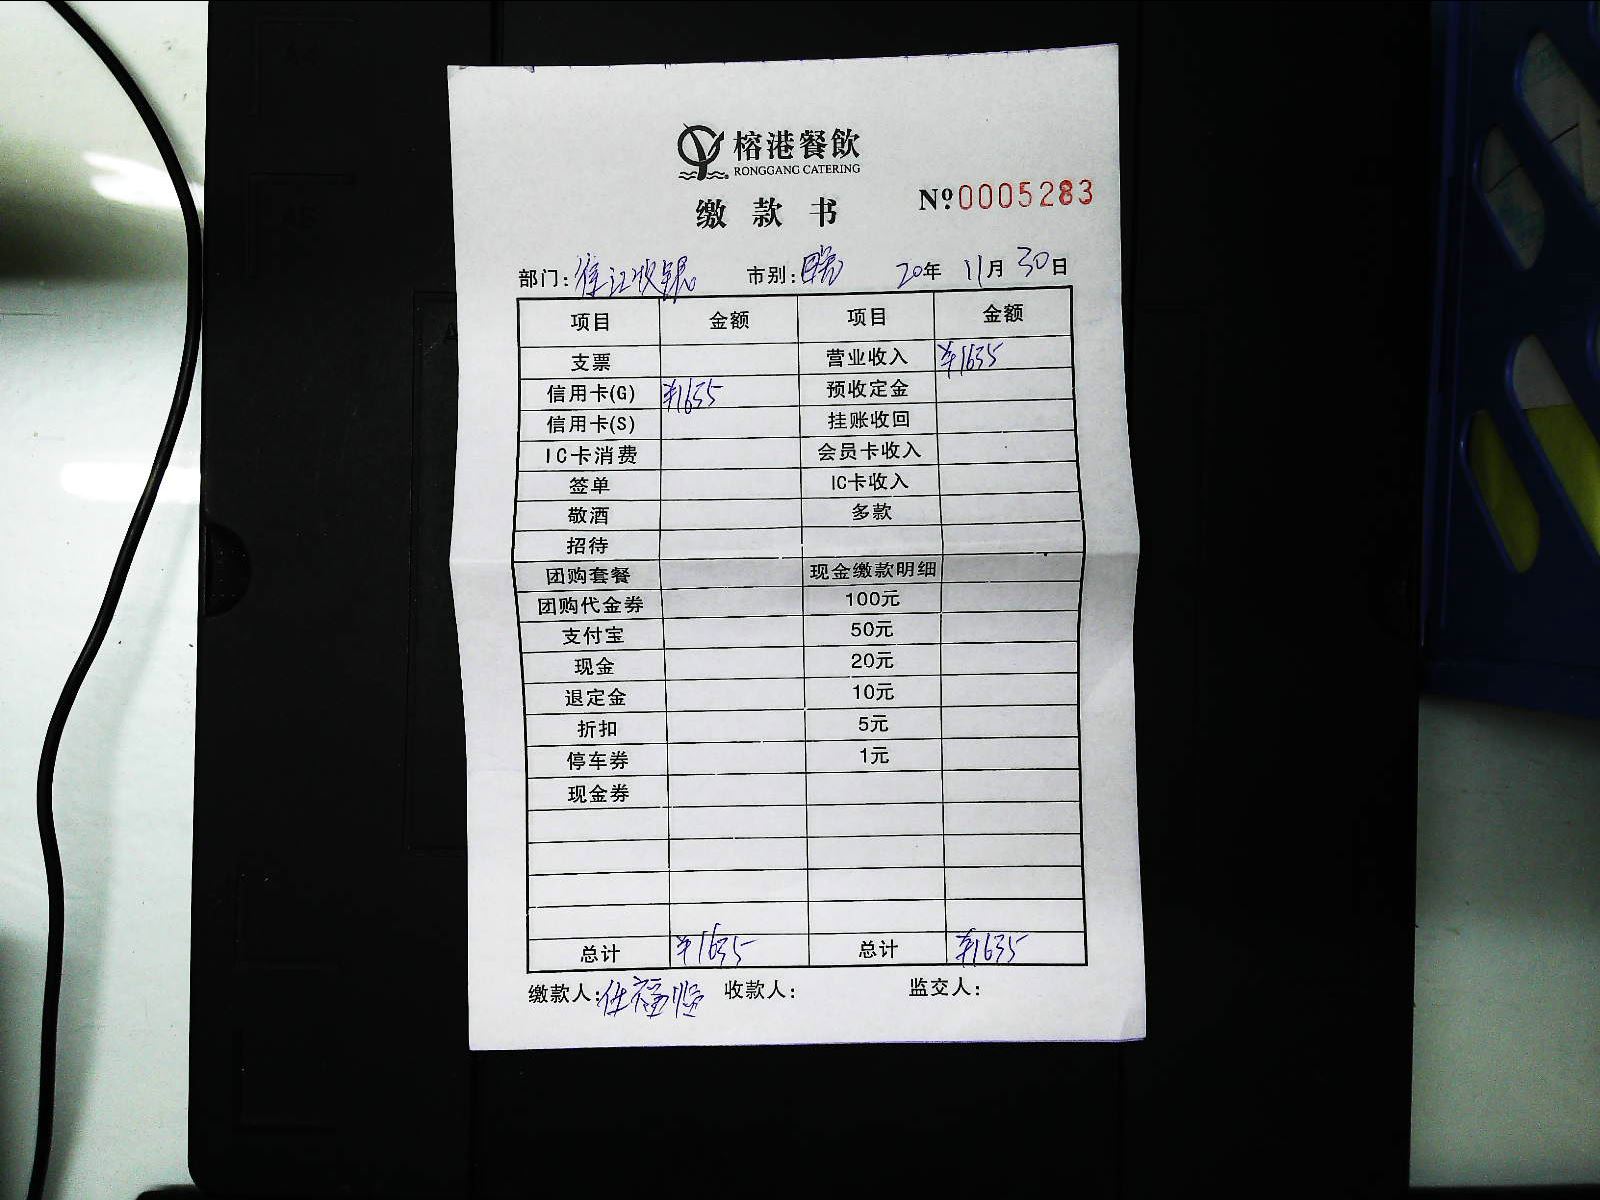 榕港餐飲
RONGGANG CATERING
缴款书
Nº0005283
部门: 江收银 市别: 20年 11月 30日
项目 金额 项目 金额
支票 营业收入 ¥1635
信用卡(G) ¥1635 预收定金
信用卡(S) 挂账收回
IC卡消费 会员卡收入
签单 IC卡收入
敬酒 多款
招待
团购套餐 现金缴款明细
团购代金券 100元
支付宝 50元
现金 20元
退定金 10元
折扣 5元
停车券 1元
现金券
总计 ¥1635 总计 ¥1635
缴款人: 收款人: 监交人: